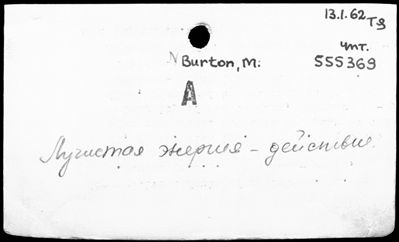 13.1.62 ТЯ
Burton, M.
чит.
555369
А
Лучистая энергия - действие.